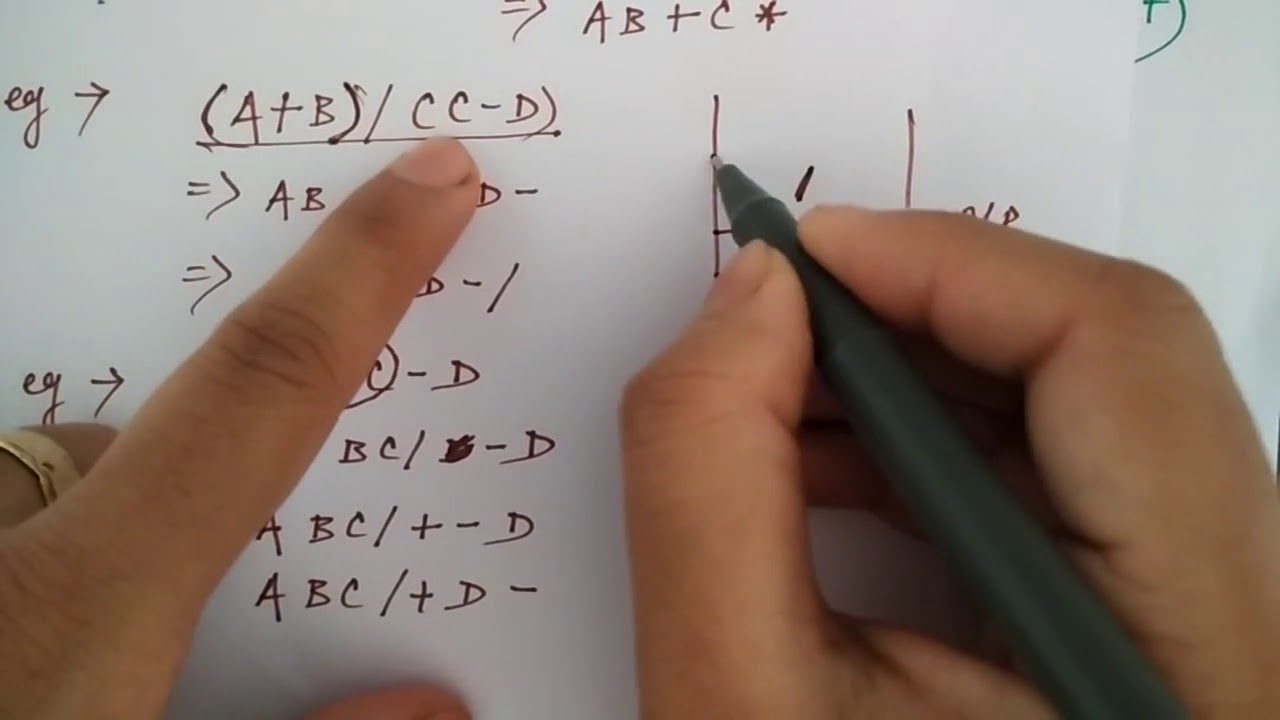 => AB+C*
eg → (A+B)/(C-D)
=> AB D-
=> D-/
eg → C)-D
BC/ -D
A BC/+-D
ABC/+D-
/